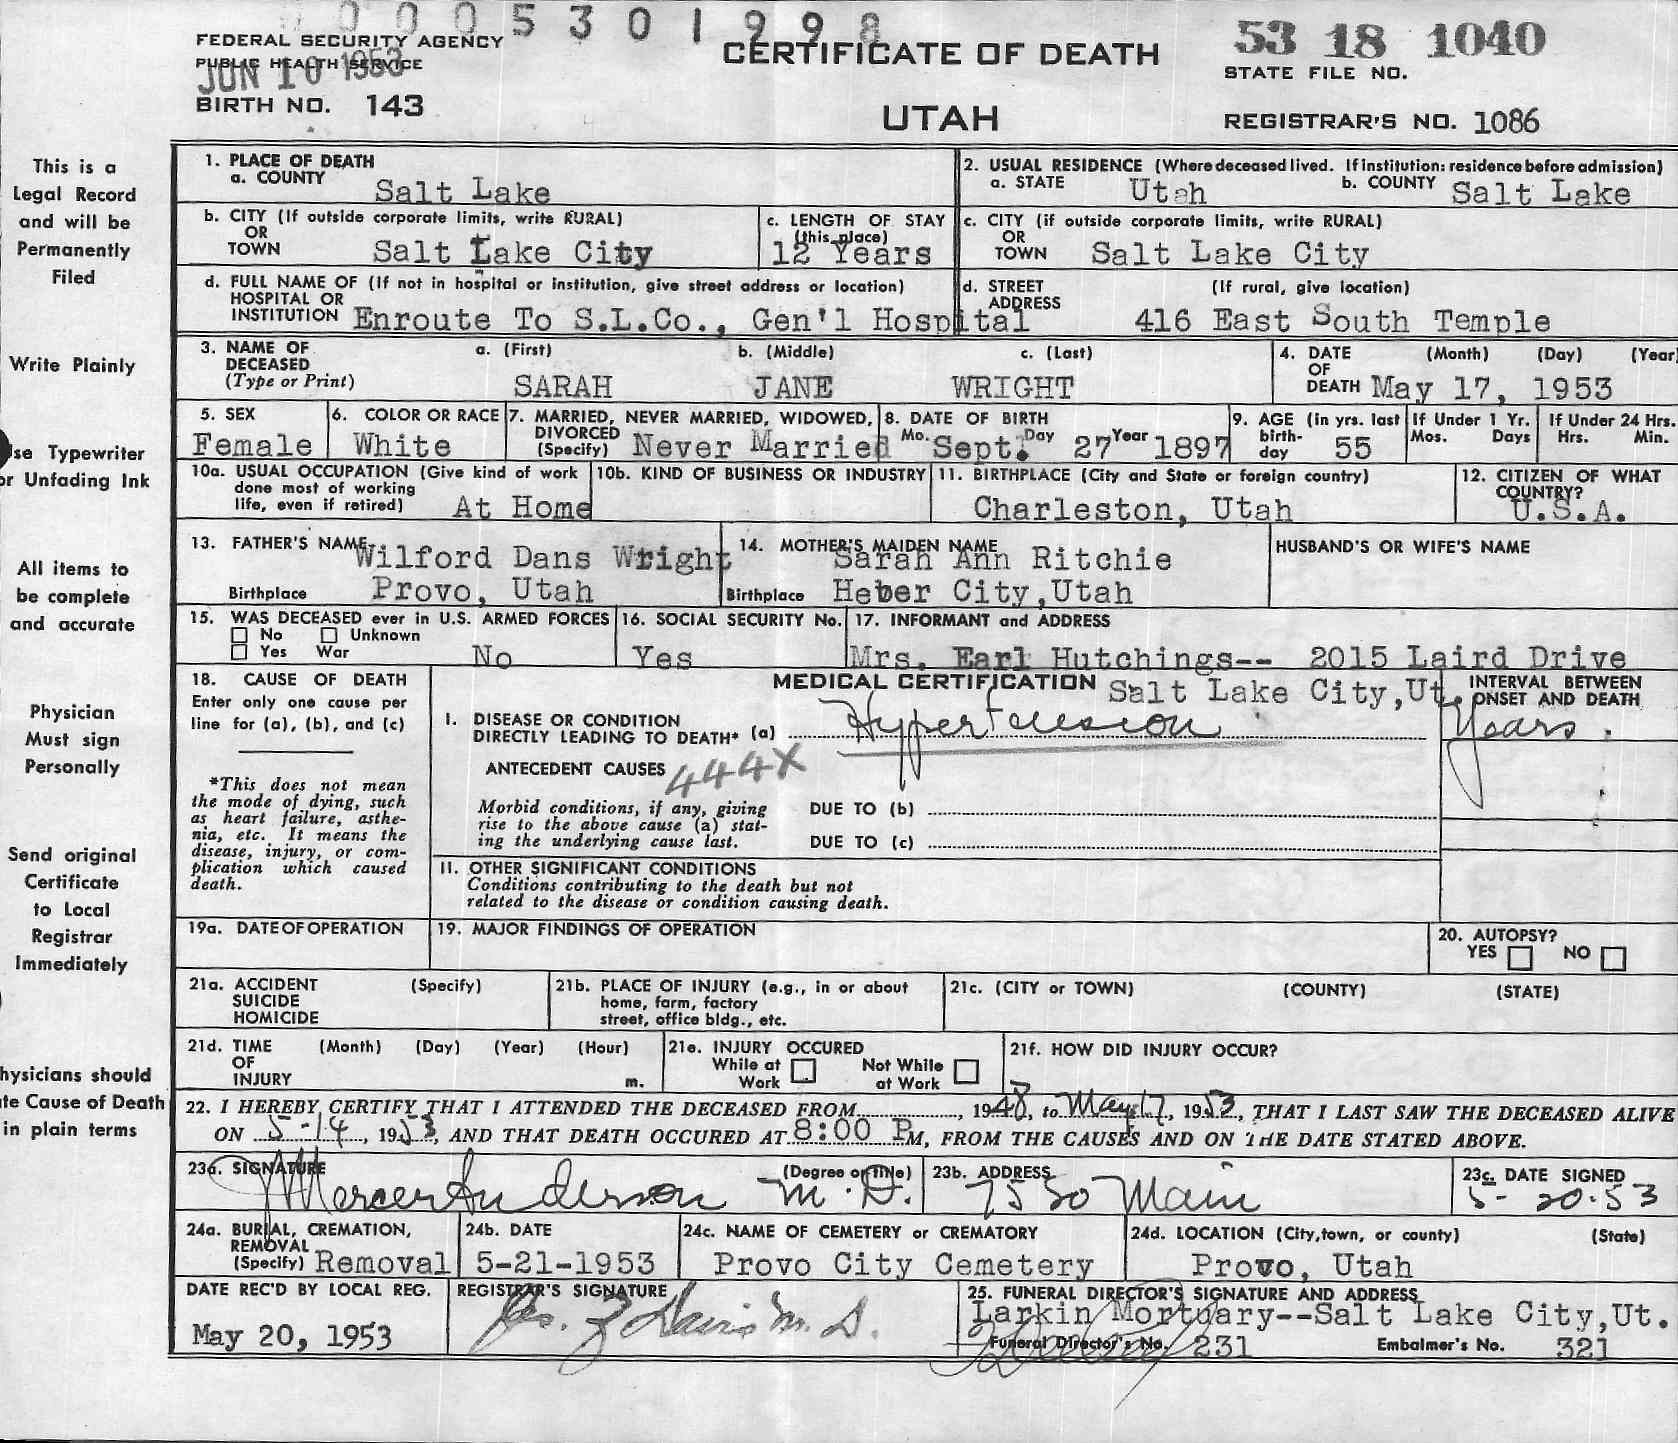 0005301998
53 18 1040
FEDERAL SECURITY AGENCY
PUBLIC HEALTH SERVICE
JUN 10 1953
CERTIFICATE OF DEATH
STATE FILE NO.
BIRTH NO. 143
UTAH
REGISTRAR'S NO. 1086
This is a
Legal Record
and will be
Permanently
Filed
Write Plainly
se Typewriter
or Unfading Ink
All items to
be complete
and accurate
Physician
Must sign
Personally
Send original
Certificate
to Local
Registrar
Immediately
hysicians should
te Cause of Death
in plain terms
1. PLACE OF DEATH
a. COUNTY Salt Lake
2. USUAL RESIDENCE (Where deceased lived. If institution: residence before admission)
a. STATE Utah b. COUNTY Salt Lake
b. CITY (If outside corporate limits, write RURAL)
OR
TOWN Salt Lake City
c. LENGTH OF STAY
(this place)
12 Years
c. CITY (if outside corporate limits, write RURAL)
OR
TOWN Salt Lake City
d. FULL NAME OF (If not in hospital or institution, give street address or location)
HOSPITAL OR
INSTITUTION Enroute To S.L.Co., Gen'l Hospital
d. STREET (If rural, give location)
ADDRESS
416 East South Temple
3. NAME OF DECEASED a. (First) b. (Middle) c. (Last)
(Type or Print) SARAH JANE WRIGHT
4. DATE (Month) (Day) (Year)
OF
DEATH May 17, 1953
5. SEX
Female
6. COLOR OR RACE
White
7. MARRIED, NEVER MARRIED, WIDOWED,
DIVORCED
(Specify) Never Married
8. DATE OF BIRTH
Mo. Sept. Day 27 Year 1897
9. AGE (in yrs. last
birth-
day 55
If Under 1 Yr.
Mos. Days
If Under 24 Hrs.
Hrs. Min.
10a. USUAL OCCUPATION (Give kind of work
done most of working
life, even if retired) At Home
10b. KIND OF BUSINESS OR INDUSTRY
11. BIRTHPLACE (City and State or foreign country)
Charleston, Utah
12. CITIZEN OF WHAT
COUNTRY?
U.S.A.
13. FATHER'S NAME Wilford Dans Wright
Birthplace Provo, Utah
14. MOTHER'S MAIDEN NAME
Sarah Ann Ritchie
Birthplace Heber City,Utah
HUSBAND'S OR WIFE'S NAME
15. WAS DECEASED ever in U.S. ARMED FORCES
No Unknown
Yes War No
16. SOCIAL SECURITY No.
Yes
17. INFORMANT and ADDRESS
Mrs. Earl Hutchings-- 2015 Laird Drive
Salt Lake City,Ut.
18. CAUSE OF DEATH
Enter only one cause per
line for (a), (b), and (c)
*This does not mean
the mode of dying, such
as heart failure, asthe-
nia, etc. It means the
disease, injury, or com-
plication which caused
death.
MEDICAL CERTIFICATION
INTERVAL BETWEEN
ONSET AND DEATH
I. DISEASE OR CONDITION
DIRECTLY LEADING TO DEATH* (a) Hypertension
Years.
ANTECEDENT CAUSES 444X
Morbid conditions, if any, giving
rise to the above cause (a) stat-
ing the underlying cause last.
DUE TO (b)
DUE TO (c)
II. OTHER SIGNIFICANT CONDITIONS
Conditions contributing to the death but not
related to the disease or condition causing death.
19a. DATE OF OPERATION
19. MAJOR FINDINGS OF OPERATION
20. AUTOPSY?
YES NO
21a. ACCIDENT (Specify)
SUICIDE
HOMICIDE
21b. PLACE OF INJURY (e.g., in or about
home, farm, factory
street, office bldg., etc.
21c. (CITY or TOWN) (COUNTY) (STATE)
21d. TIME (Month) (Day) (Year) (Hour)
OF
INJURY m.
21e. INJURY OCCURED
While at Work Not While at Work
21f. HOW DID INJURY OCCUR?
22. I HEREBY CERTIFY THAT I ATTENDED THE DECEASED FROM , 1948, to May 17, 1953, THAT I LAST SAW THE DECEASED ALIVE
ON 5-14, 1953, AND THAT DEATH OCCURED AT 8:00 P M, FROM THE CAUSES AND ON THE DATE STATED ABOVE.
23a. SIGNATURE (Degree or title)
Mercer Anderson M.D.
23b. ADDRESS
7580 Main
23c. DATE SIGNED
5-20-53
24a. BURIAL, CREMATION,
REMOVAL
(Specify) Removal
24b. DATE
5-21-1953
24c. NAME OF CEMETERY or CREMATORY
Provo City Cemetery
24d. LOCATION (City,town, or county) (State)
Provo, Utah
DATE REC'D BY LOCAL REG.
May 20, 1953
REGISTRAR'S SIGNATURE
Davis M.D.
25. FUNERAL DIRECTOR'S SIGNATURE AND ADDRESS
Larkin Mortuary--Salt Lake City,Ut.
Funeral Director's No. 231 Embalmer's No. 321